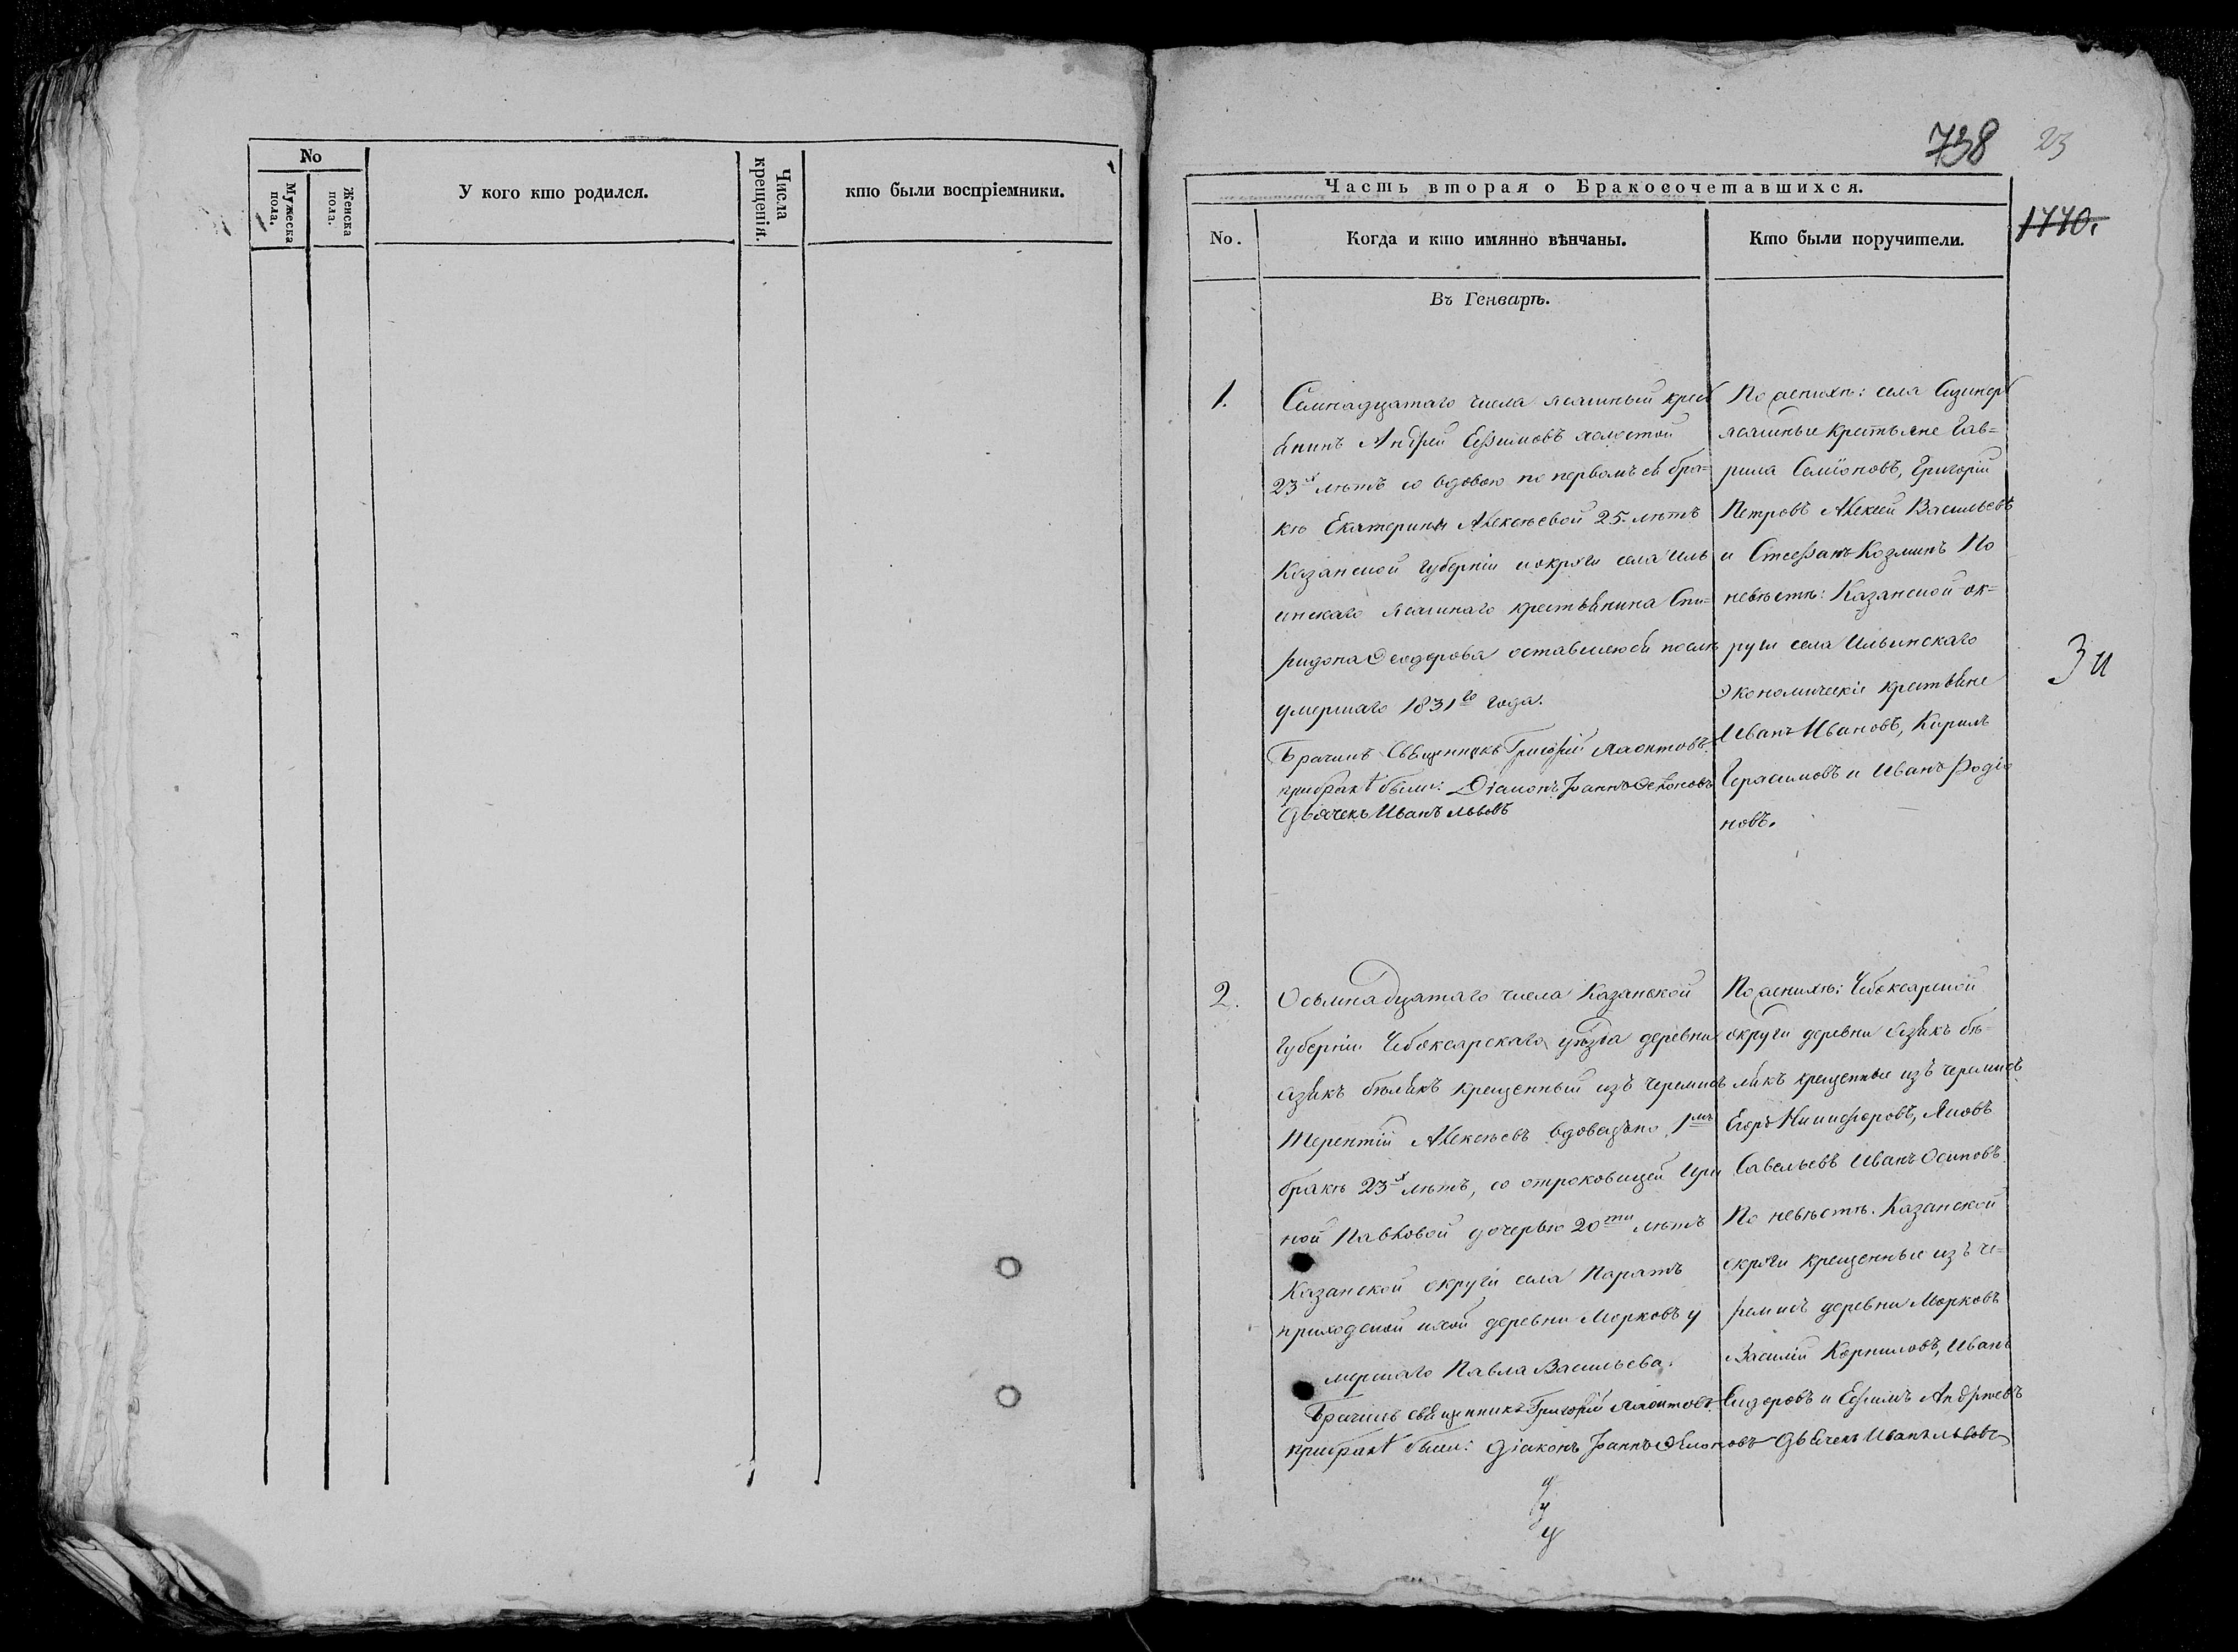 No
Мужеска пола.
Женска пола.
У кого кто родился.
Числа крещенія.
кто были воспріемники.
738 23
Часть вторая о Бракосочетавшихся.
1770.
No.
Когда и кто имянно вѣнчаны.
Кто были поручители.
Въ Генварѣ.
1.
Семнадцатаго числа ясашный крест
янинъ Андрей Ефимовъ холостой
23х лѣтъ со вдовою по первомъ ея бра=
кѣ Екатериной Алексѣевой 25. лѣтъ
Казанской губерніи и округи села Иль
инскаго ясашнаго крестьянина Спи=
ридона Феодорова оставшеюся послѣ
умершаго 1831го года.
Брачилъ Священникъ Григорій
при бракѣ были: Діаконъ Іоаннъ
Дьячекъ Иванъ Львовъ
По женихѣ: села
ясашные крестьяне Гав=
рила Семіоновъ, Григорій
Петровъ Алексей Васильевъ
и Стефанъ Козминъ По
невѣстѣ: Казанской ок=
руги села Ильинскаго
Экономическіе крестьяне
Иванъ Ивановъ, Кирилъ
Герасимовъ и Иванъ Родіо
новъ.
2.
Осьмнадцатаго числа Казанской
губерніи Чебоксарскаго уѣзда деревни
крещенный изъ черемисъ
Терентій Алексѣевъ вдовецъ по 1мъ
бракѣ 23х лѣтъ, со отроковицей Ири
ной Павловой дочерью 20ти лѣтъ
Казанской округи села Паратъ
приходской деревни Морковъ у
мершаго Павла Васильева.
Брачилъ священникъ Григорій
при бракѣ были: Діаконъ Іоаннъ Дьячекъ Иванъ Львовъ
По женихѣ: Чебоксарской
округи деревни
крещенные изъ черемисъ
Егоръ Никифоровъ, Яковъ
Савельевъ Иванъ Осиповъ.
По невѣстѣ. Казанской
округи крещенные изъ че=
ремисъ деревни Морковъ
Василій Корниловъ, Иванъ
Сидоровъ и Ефимъ Андреевъ